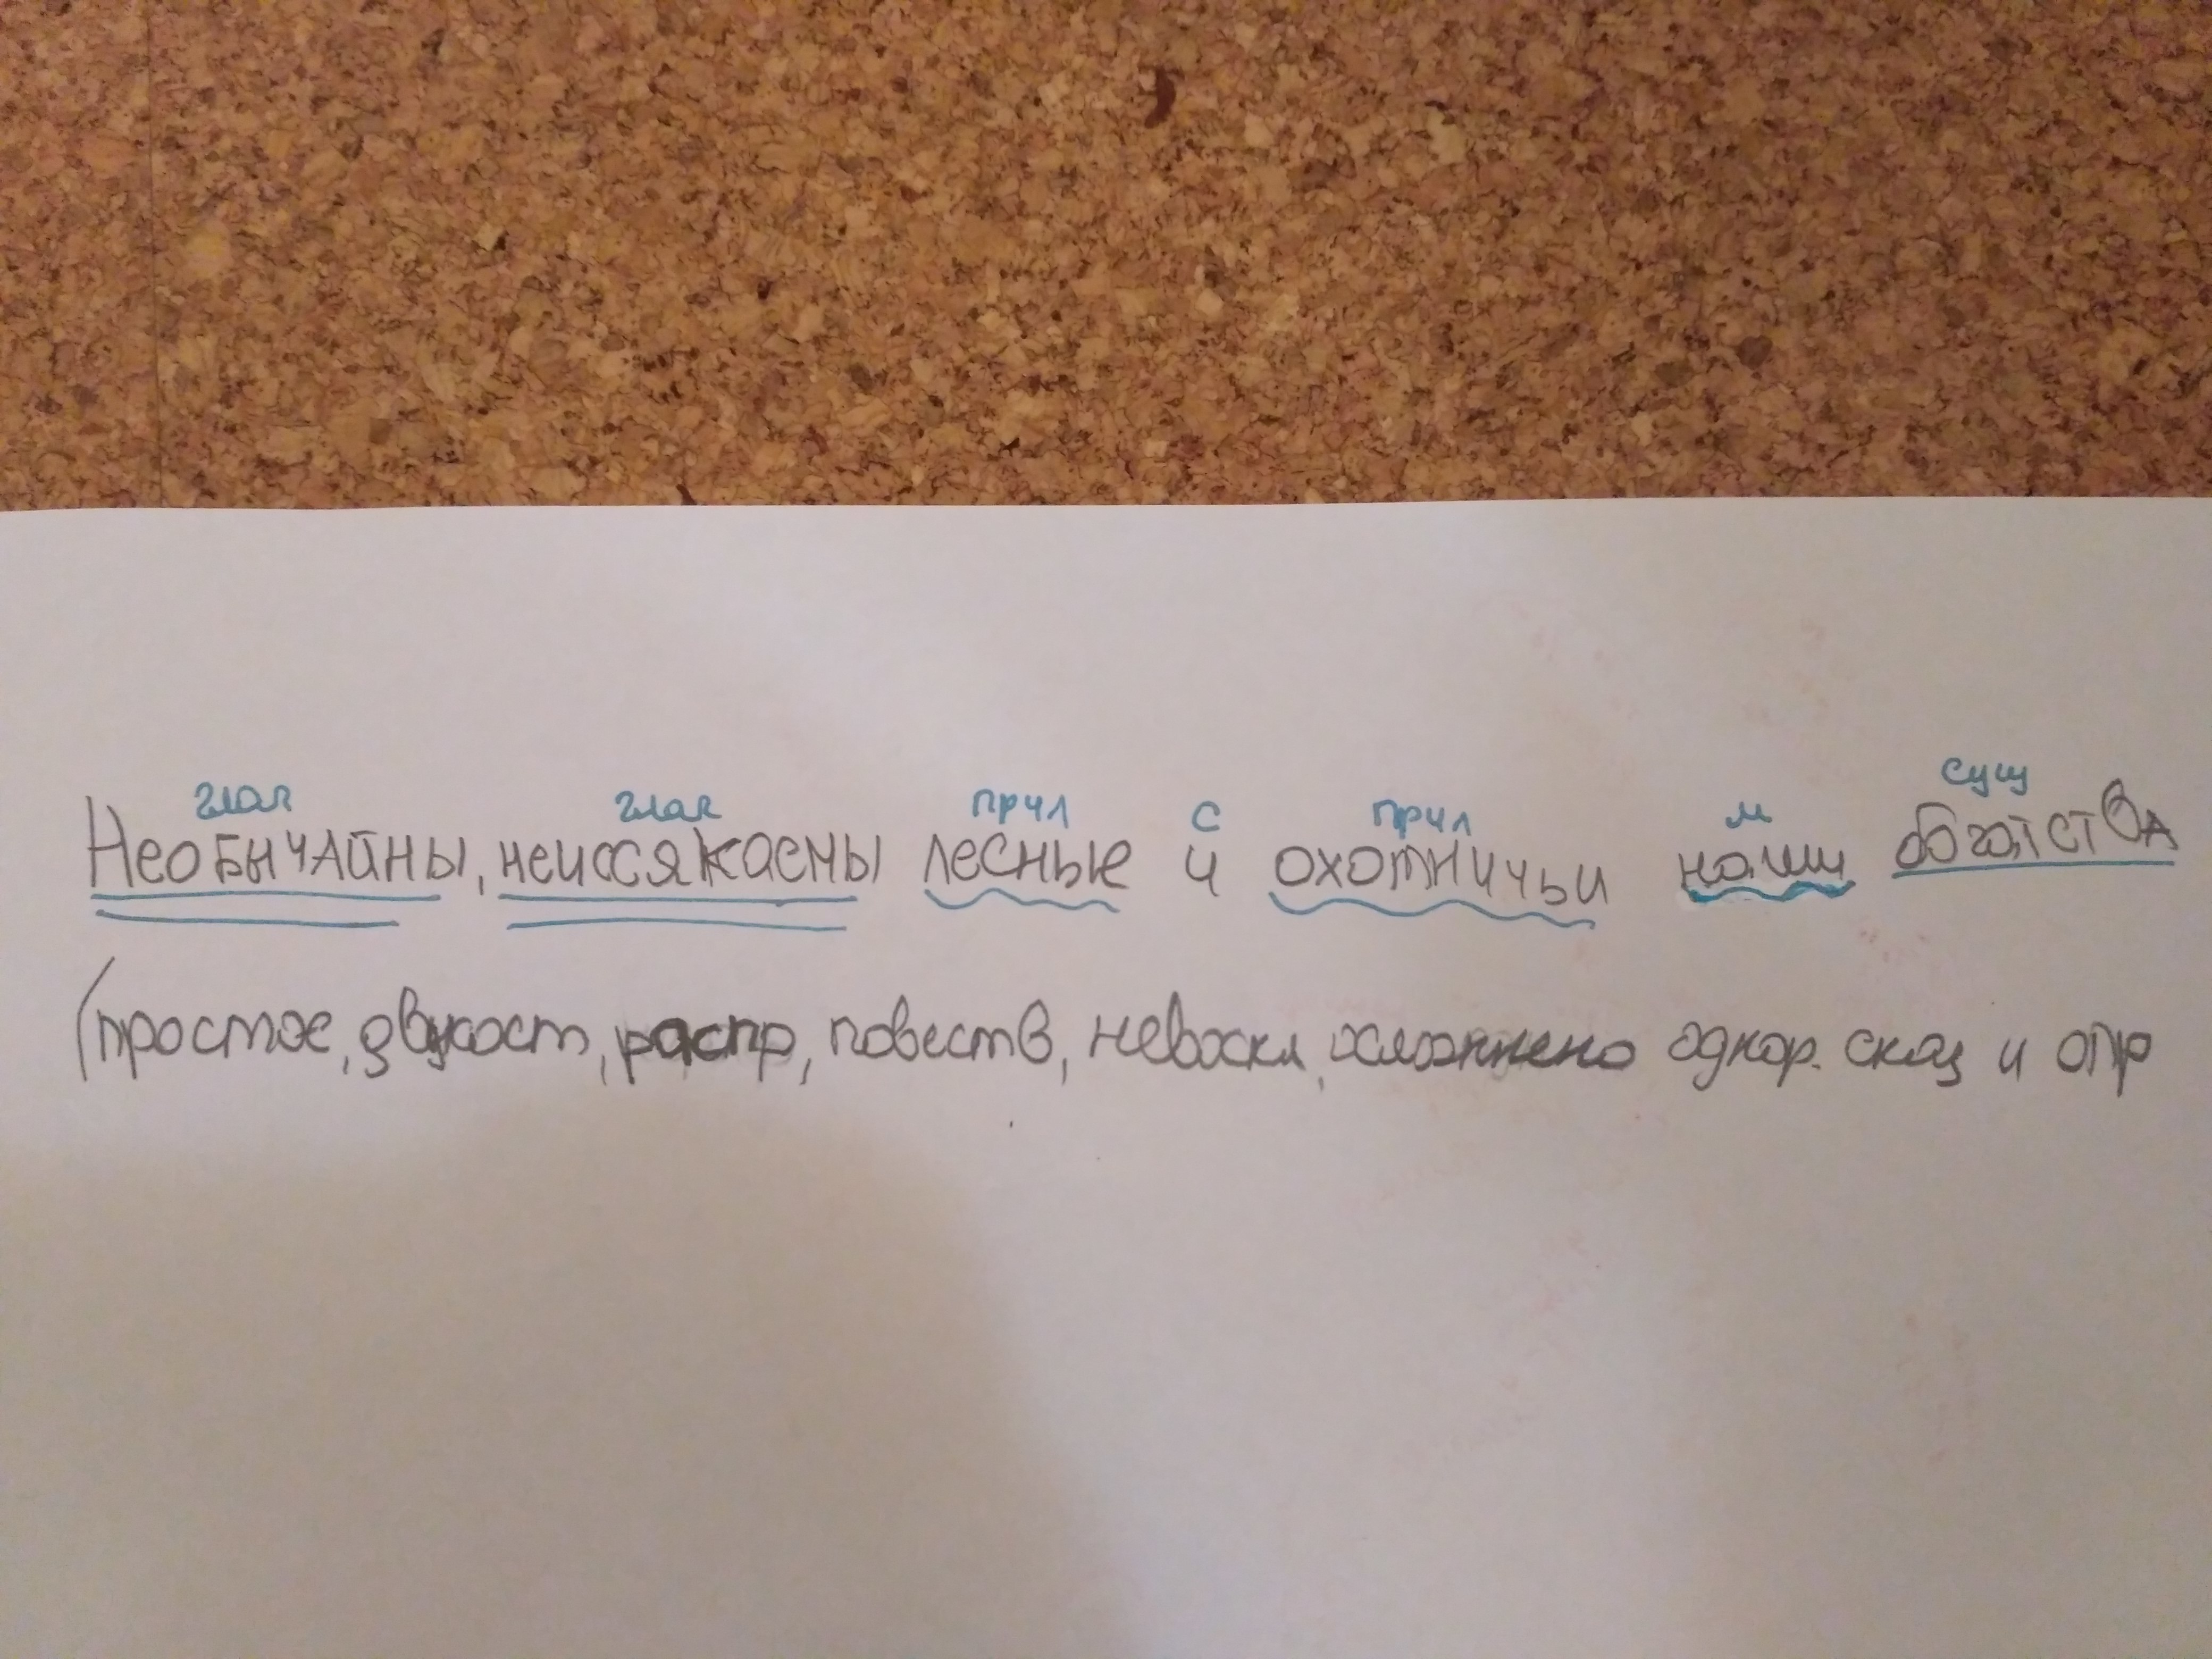 глаг глаг прил с прил м сущ
Необычайны, неиссякаемы лесные и охотничьи наши богатства
(простое, двусост, распр, повеств, невоскл, осложнено однор. сказ и опр